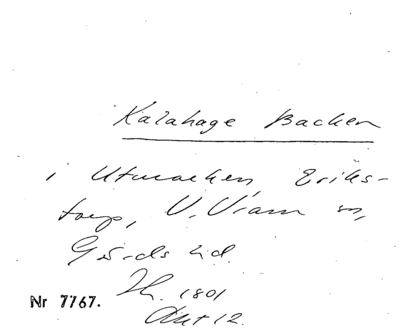 Kalahage Backen
i Utmarken, Eriks-
torp, V. Vram sn,
Gärds hd.
Nr 7767. Th. 1801
Akt 12.